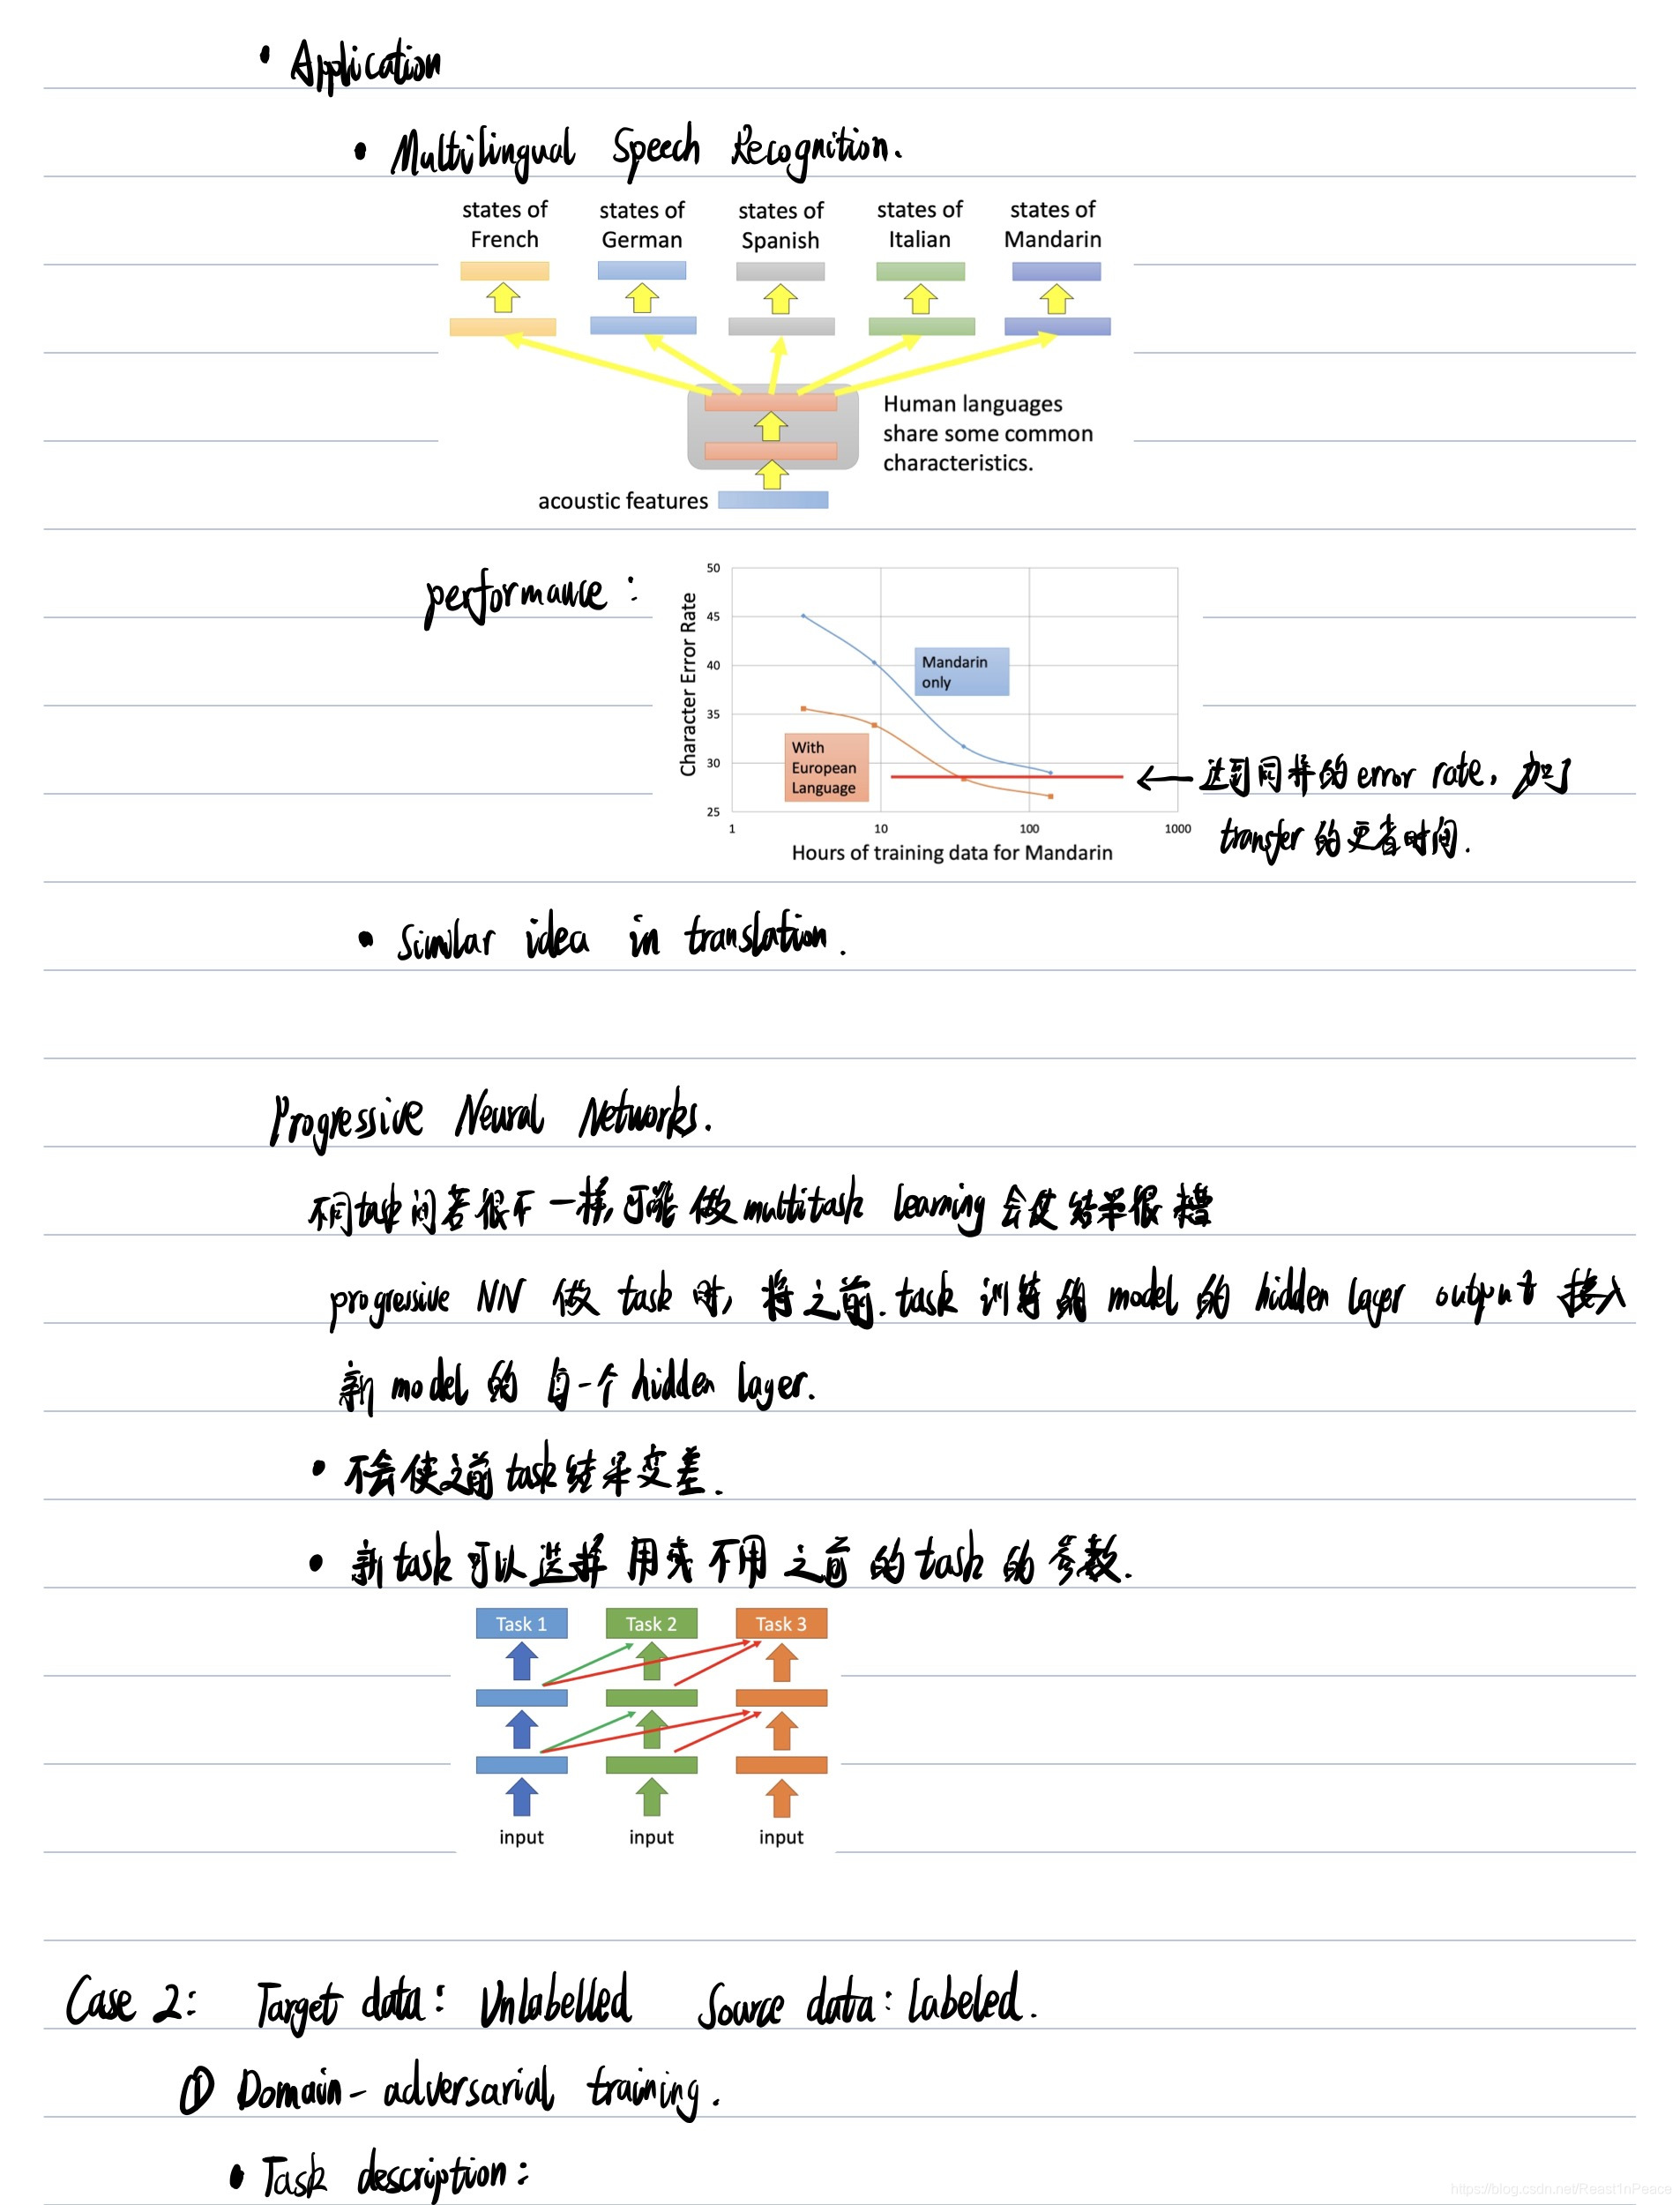 • Application
• Multilingual Speech Recognition.
states of French
states of German
states of Spanish
states of Italian
states of Mandarin
Human languages
share some common
characteristics.
acoustic features
performance:
Character Error Rate
50
45
40
35
30
25
Mandarin
only
With
European
Language
1 10 100 1000
Hours of training data for Mandarin
← 达到同样的error rate, 加了
transfer的更省时间.
• Similar idea in translation.
Progressive Neural Networks.
不同task间若很不一样,可能做multitask learning会使结果很糟
progressive NN 做task时, 将之前.task训练的model的hidden layer output接入
新model的每一个hidden layer.
• 不会使之前task结果变差.
• 新task可以选择用或不用之前的task的参数.
Task 1 Task 2 Task 3
input input input
Case 2: Target data: Unlabelled Source data: labeled.
① Domain-adversarial training.
• Task description:
https://blog.csdn.net/Reast1nPeace